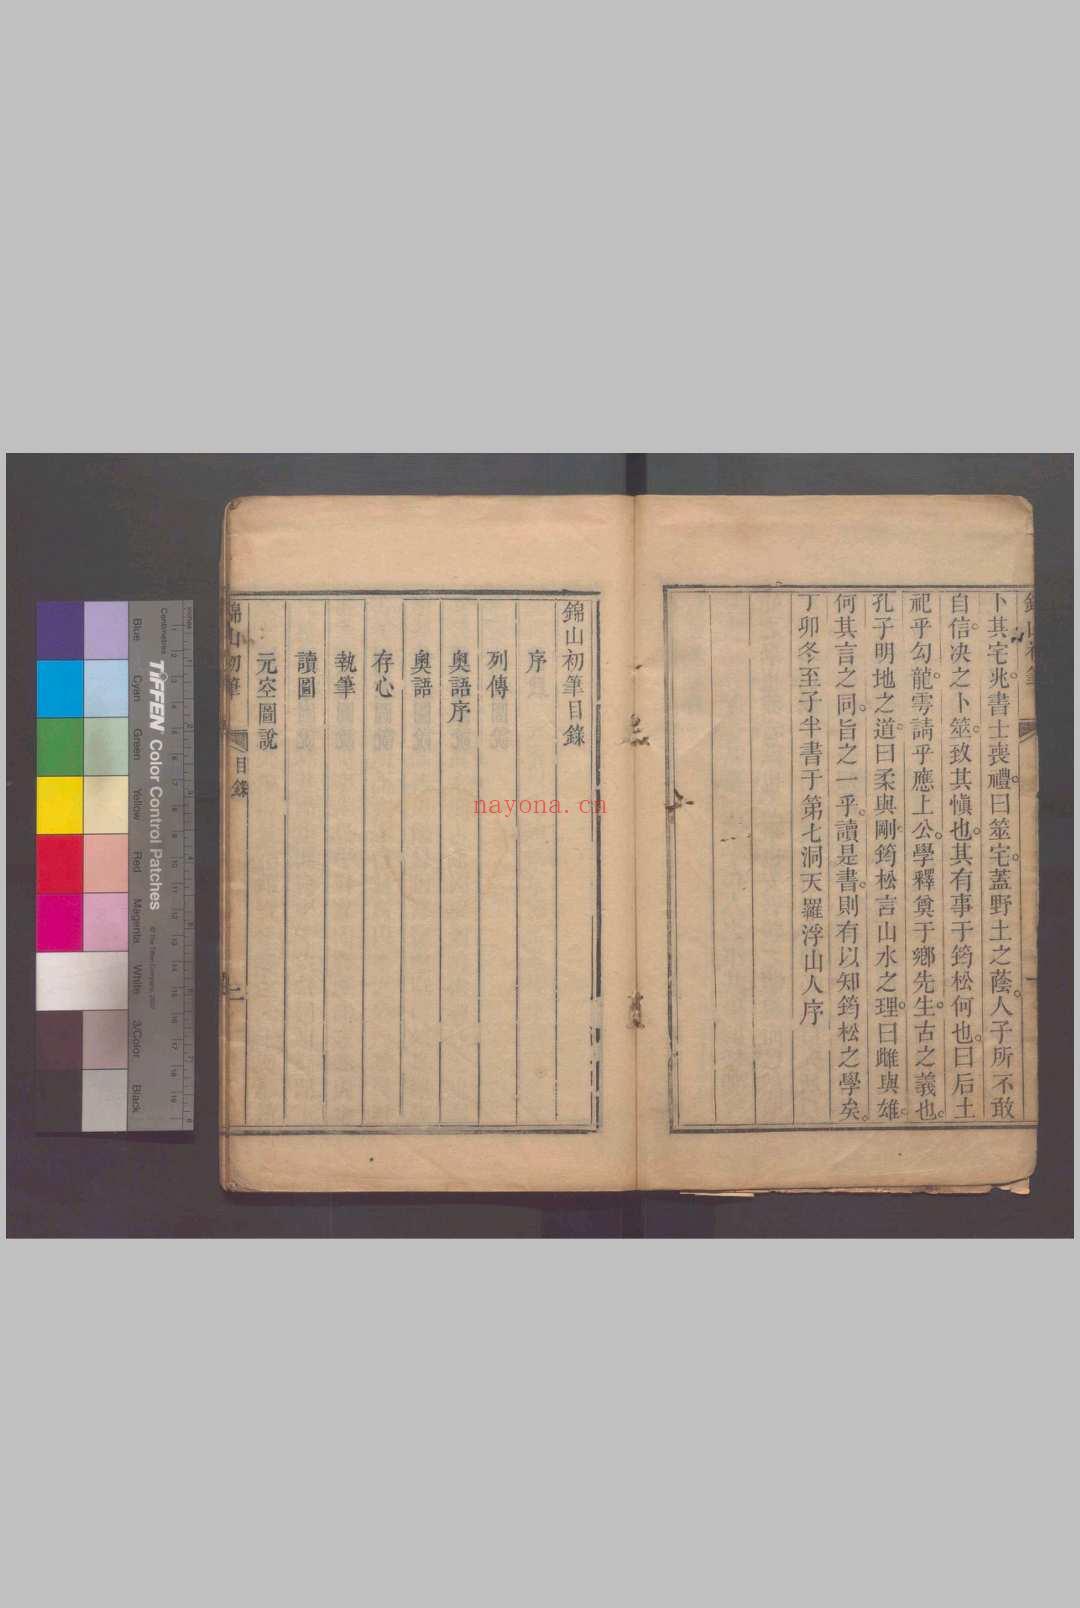 卜其宅兆。書士喪禮。曰筮宅。蓋野土之蔭。人子所不敢
自信。决之卜筮。致其愼也。其有事于筠松何也。曰后土
祀乎勾龍。雩請乎應上公。學釋奠于鄉先生。古之義也。
孔子明地之道。曰柔與剛。筠松言山水之理。曰雌與雄。
何其言之同。旨之一乎。讀是書。則有以知筠松之學矣。
丁卯冬至子半書于第七洞天羅浮山人序
錦山初筆目錄
序
列傳
奧語序
奧語
存心
執筆
讀圖
元空圖說
錦山初筆
目錄
二
nayona.cn
inches
Centimetres
TIFFEN Color Control Patches
© The Tiffen Company, 2007
Blue
Cyan
Green
Yellow
Red
Magenta
White
3/Color
Black